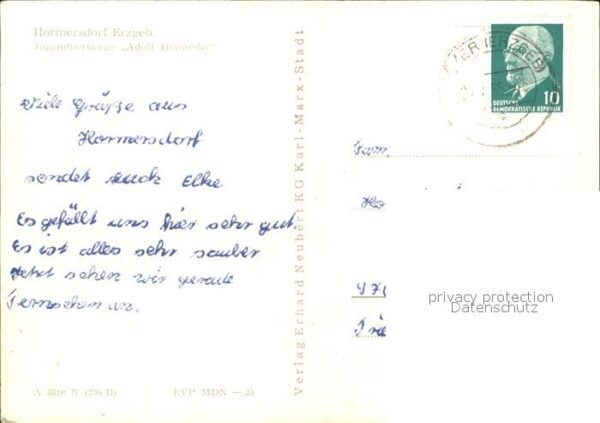 Hormersdorf Erzgeb.
Jugendherberge „Adolf Hennecke"
Viele Grüße aus
Hormersdorf
sendet euch Elke
Es gefällt uns hier sehr gut.
Es ist alles sehr sauber
Jetzt sehen wir gerade
Fernsehen an.
A 8810 N
EVP MDN —.25
Verlag Erhard Neubert KG Karl-Marx-Stadt
(ERZGEB)
10
DEUTSCHE
DEMOKRATISCHE REPUBLIK
Fam.
Ho
privacy protection
Datenschutz